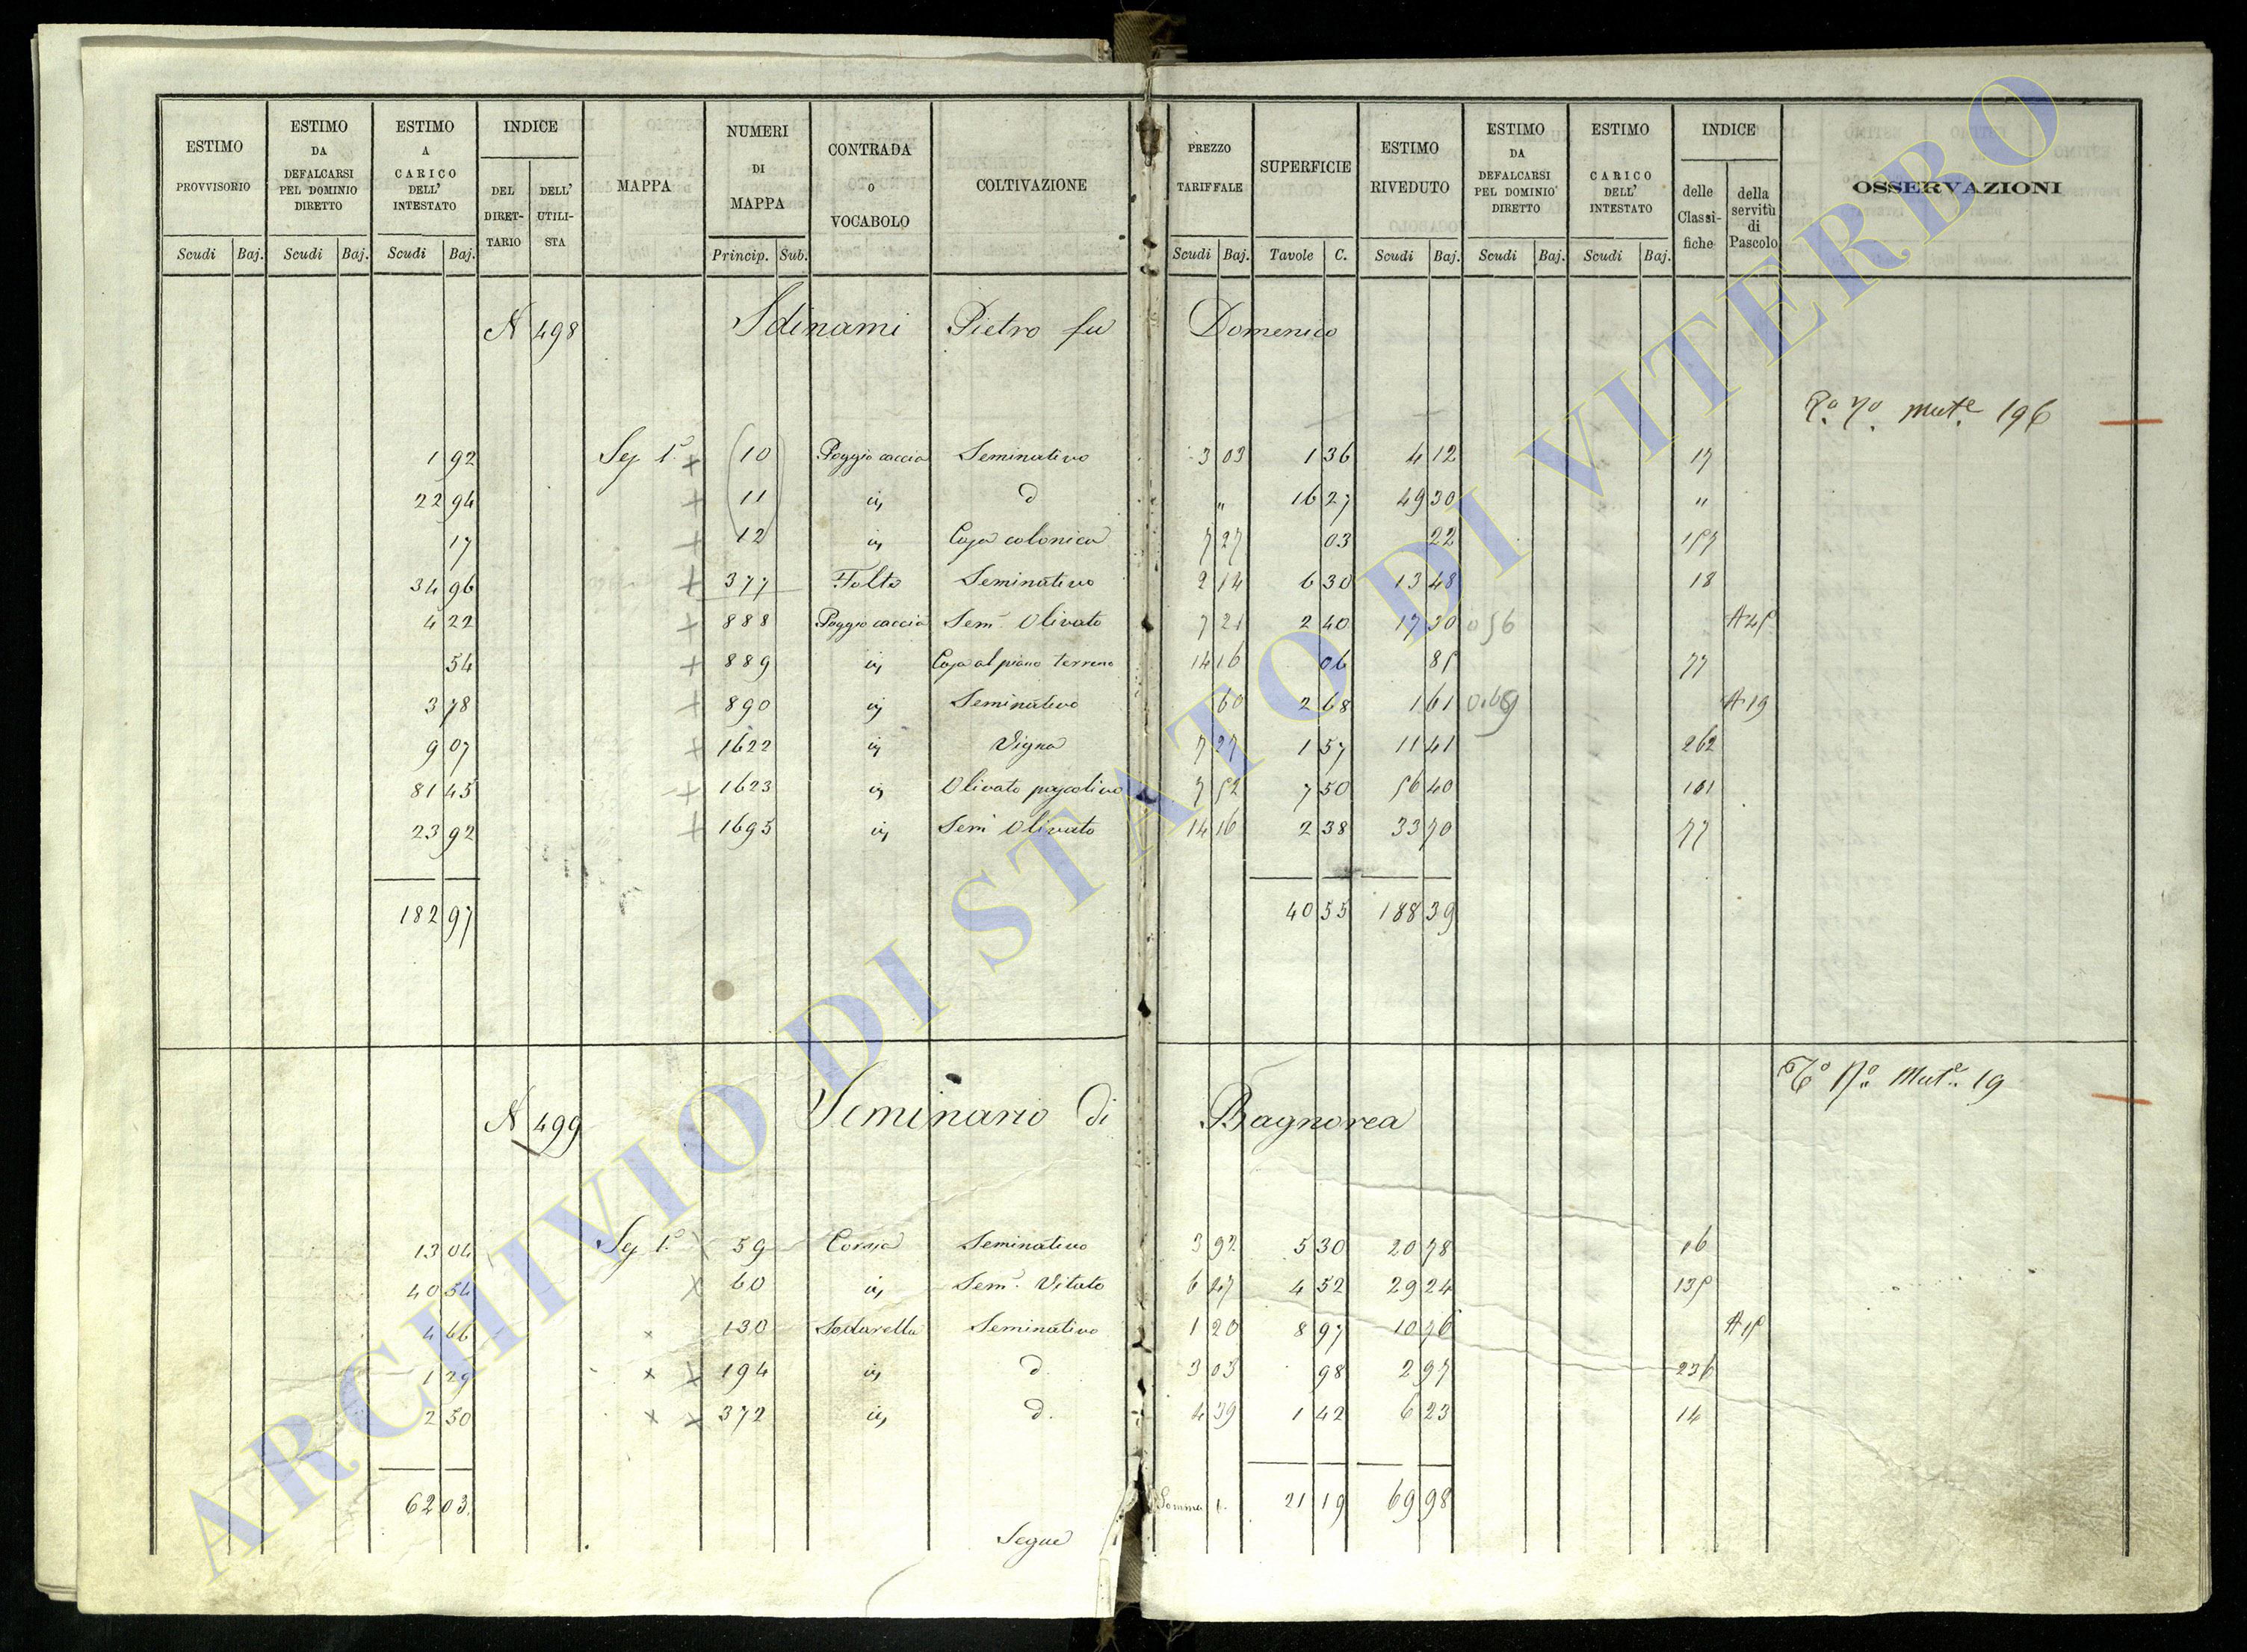 ESTIMO PROVVISORIO | ESTIMO DA DEFALCARSI PEL DOMINIO DIRETTO | ESTIMO A CARICO DELL' INTESTATO | INDICE | MAPPA | NUMERI DI MAPPA | CONTRADA O VOCABOLO | COLTIVAZIONE | PREZZO TARIFFALE | SUPERFICIE | ESTIMO RIVEDUTO | ESTIMO DA DEFALCARSI PEL DOMINIO DIRETTO | ESTIMO A CARICO DELL' INTESTATO | INDICE | OSSERVAZIONI
DEL DIRETTARIO | DELL' UTILISTA | delle Classifiche | della servitù di Pascolo
Scudi | Baj. | Scudi | Baj. | Scudi | Baj. | Princip. | Sub. | Scudi | Baj. | Tavole | C. | Scudi | Baj. | Scudi | Baj. | Scudi | Baj.
N 498 Sdinami Pietro fu Domenico
Mut.e 196
1 92 | Sez 1.a + | 10 | Poggio caccia | Seminativo | 3 03 | 1 36 | 4 12 | 17
22 94 | + | 11 | ivi | d | " | 16 27 | 49 30 | "
17 | + | 12 | ivi | Casa colonica | 7 27 | 03 | 22 | 157
34 96 | + | 377 | Seminativo | 2 14 | 6 30 | 13 48 | 18
4 22 | + | 888 | Poggio caccia | Sem. Olivato | 7 21 | 2 40 | 17 30 | 0 56 | A 25
54 | + | 889 | ivi | Casa al piano terreno | 14 16 | 06 | 85 | 77
3 78 | + | 890 | ivi | Seminativo | 60 | 2 68 | 1 61 | A 19
9 07 | + | 1622 | ivi | Vigna | 7 27 | 1 57 | 11 41 | 262
81 45 | + | 1623 | ivi | Olivato pascolivo | 7 52 | 7 50 | 56 40 | 101
23 92 | + | 1695 | ivi | Sem Olivato | 14 16 | 2 38 | 33 70 | 77
182 97 | 40 55 | 188 39
Mut.e 19
N 499 Seminario di Bagnorea
13 04 | Sez 1.a x | 59 | Seminativo | 3 92 | 5 30 | 20 78 | 16
40 54 | x | 60 | ivi | Sem. Vitato | 6 47 | 4 52 | 29 24 | 135
4 66 | x | 130 | Sodarella | Seminativo | 1 20 | 8 97 | 10 76 | A 15
1 29 | x x | 194 | ivi | d. | 3 03 | 98 | 2 97 | 236
2 50 | x x | 372 | ivi | d. | 4 39 | 1 42 | 6 23 | 14
62 03 | Somma | 21 19 | 69 98
Segue
ARCHIVIO DI STATO DI VITERBO